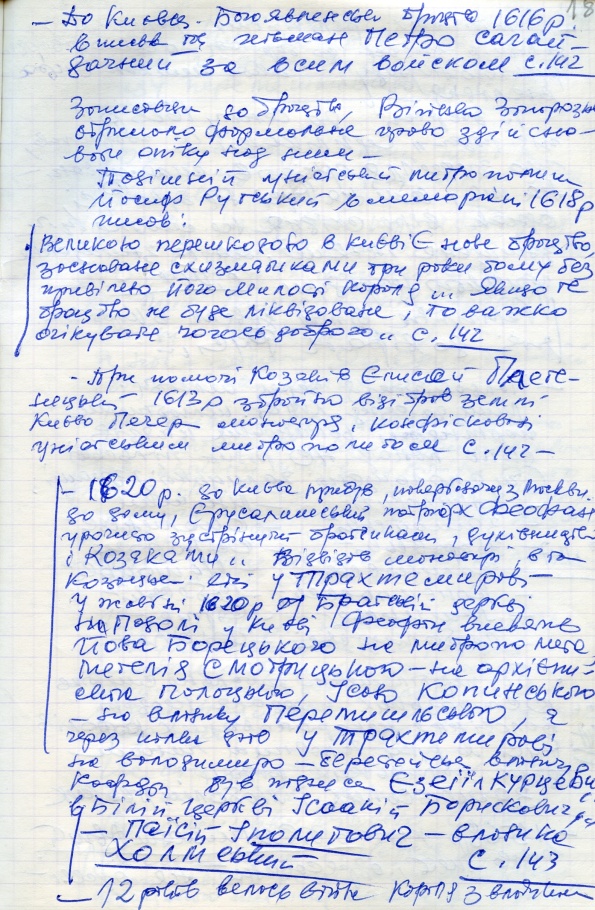 18
– До Київськ. Богоявленського братства 1616 р.
вписався гетьман Петро Сагай-
дачний за всим войском с. 142
Записавши до братства, Військо Запорозьке
отримало формальне право здійсню-
вати опіку над ним –
Тодішній уніатський митрополит
Йосиф Рутський в меморіалі 1618 р
писав:
Великою перешкодою в Києві Є нове братство,
засноване схизматиками три роки тому без
привілею його милості короля ... Якщо те
братство не буде ліквідоване, то важко
очікувати чогось доброго .. с. 142
- При помочі Козаків Єлисей Плете-
нецький 1613 р збройно відібрав землі
Києво Печер монастиря, конфісковані
уніатським митрополитом с. 142 –
– 1620 р. до Києва прибув, повертаючись з Москви
до дому, Єрусалимський патріарх Феофан
урочисто зустрінутий братчиками, духівництвом
і Козаками .. Відвідав монастирі в та
Козацькі у Трахтемирові –
У жовтні 1620 р у Братській церкві
на Подолі у Києві Феофан висвятив
Йова Борецького на митрополита,
Мелетія Смотрицького – на архієпис-
копа Полоцького, Ісаю Копинського
– на владику Перемишльського, а
через кілька днів у Трахтемирові
на володимиро – берестейську владичу
Кафедру був Єзекіїл Курцевич
в Білій Церкві Ісаакій Борискович,
– Паїсій Іполитович – владика
Холмський с. 143
– 12 років велась війна короля з владиками